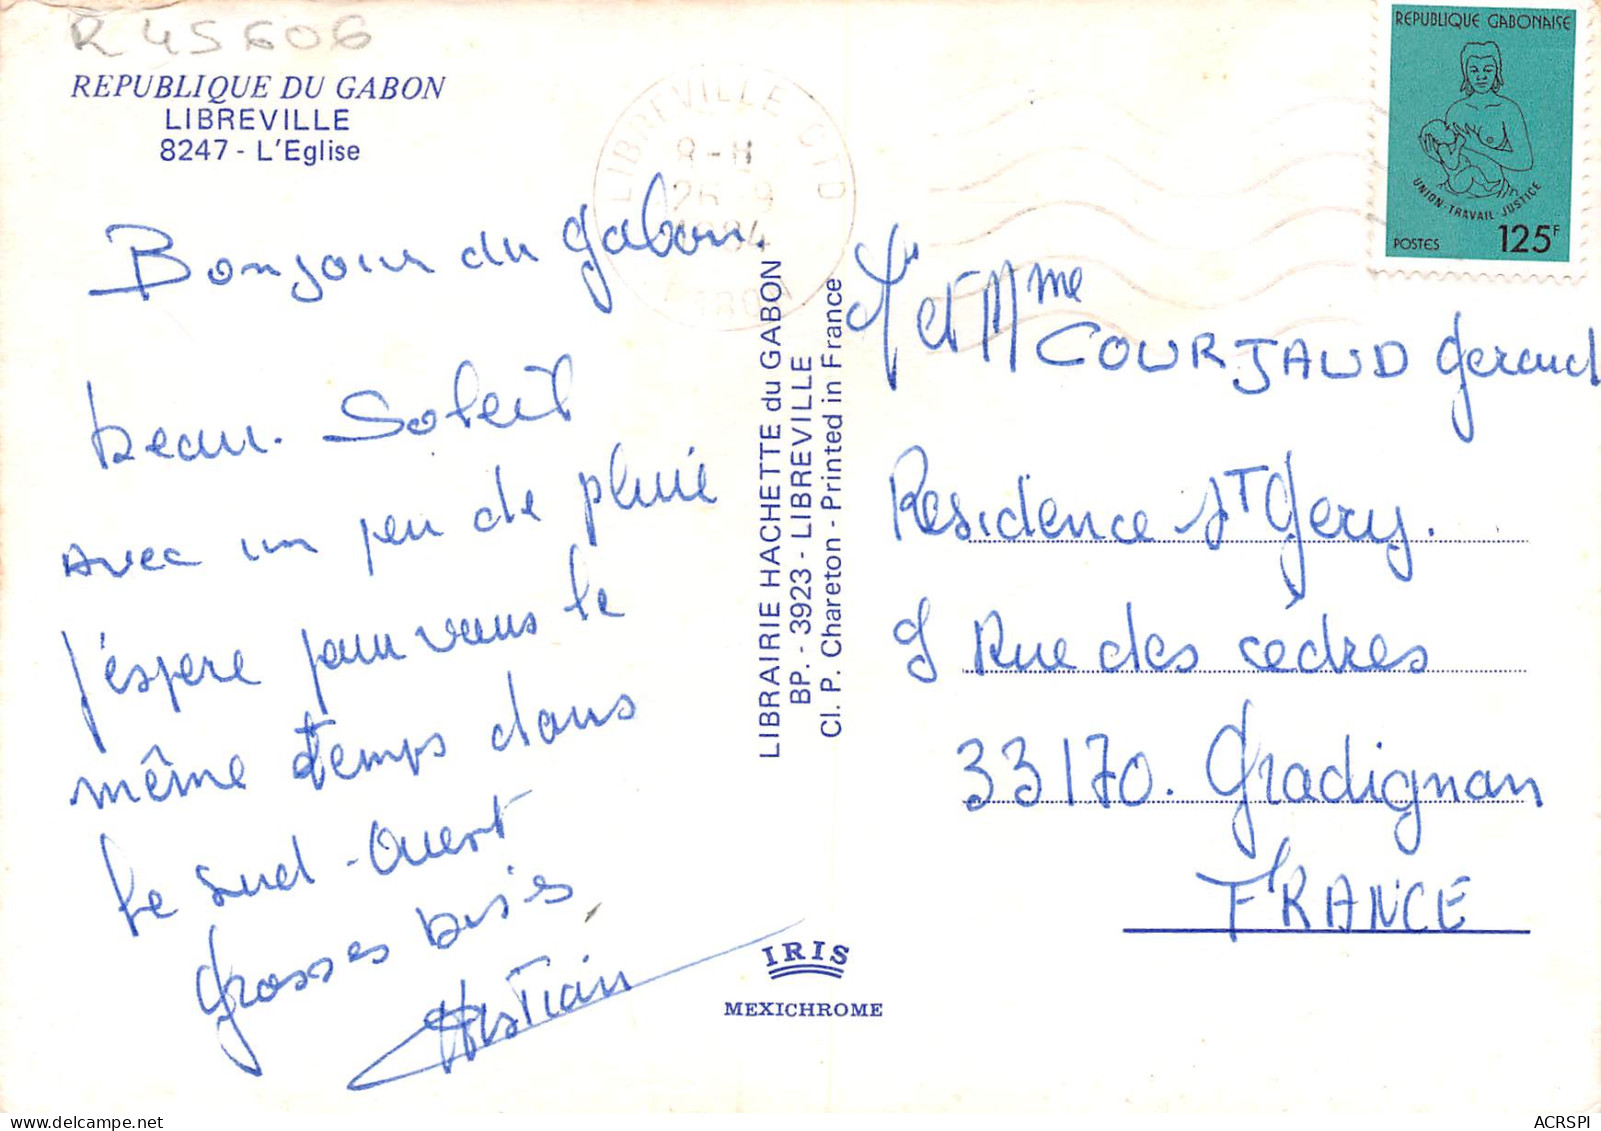 R 45606
REPUBLIQUE DU GABON
LIBREVILLE
8247 - L'Eglise
LIBREVILLE CTD
8-H
26-9
1984
GABON
REPUBLIQUE GABONAISE
UNION-TRAVAIL-JUSTICE
POSTES 125F
Bonjour du Gabon.
beau. Soleil
Avec un peu de pluie
j'espere pour vous le
même temps dans
le Sud-Ouest
Grosses bises
Christian
LIBRAIRIE HACHETTE du GABON
BP. - 3923 - LIBREVILLE
Cl. P. Chareton - Printed in France
Mr et Mme
COURJAUD Gerard
Residence St Gery.
9 Rue des cèdres
33170. Gradignan
FRANCE
IRIS
MEXICHROME
ACRSPI